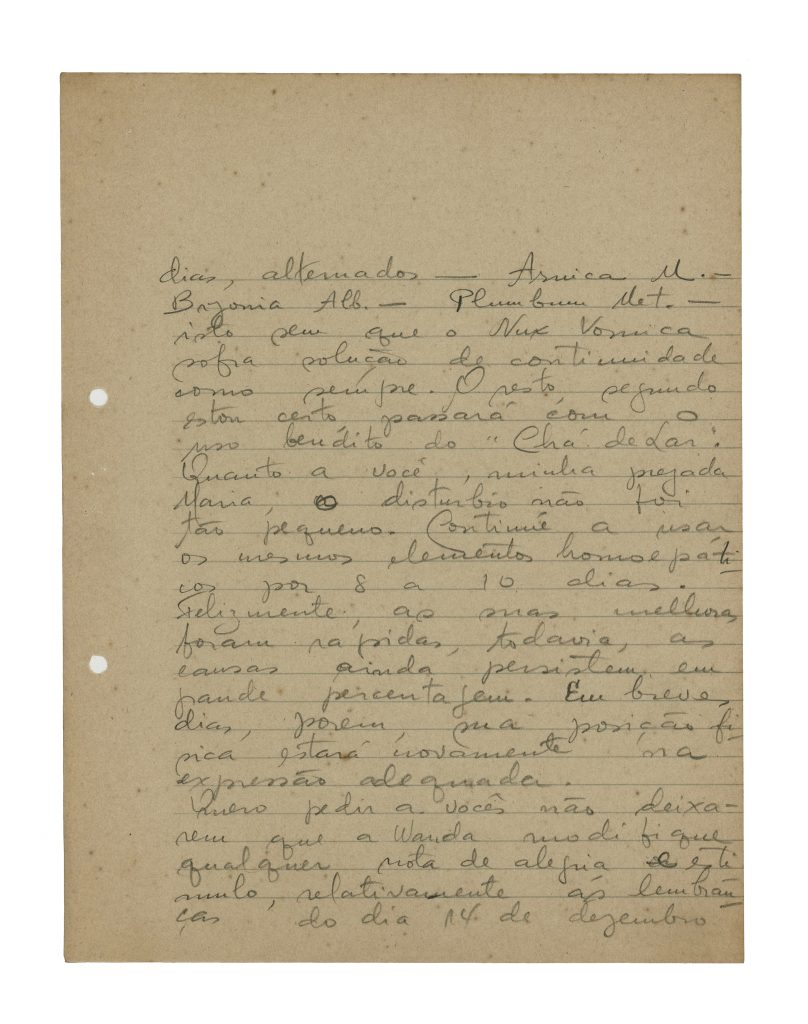 dias, alternados — Arnica M. —
Bryonia Alb. — Plumbum Met. —
isto sem que o Nux Vomica
sofra solução de continuidade
como sempre. O resto, segundo
estou certo passará com o
uso bendito do "Chá de Lar".
Quanto a você, minha prezada
Maria, o disturbio não foi
tão pequeno. Continúe a usar
os mesmos elementos homoepáti-
cos por 8 a 10 dias.
Felizmente, as suas melhoras
foram rápidas, todavia, as
causas ainda persistem em
grande percentagem. Em breves
dias, porem, sua posição fi-
sica estará novamente na
expressão adequada.
Quero pedir a vocês não deixa-
rem que a Wanda modifique
qualquer nota de alegria e esti
mulo, relativamente ás lembran-
ças do dia 14 de dezembro